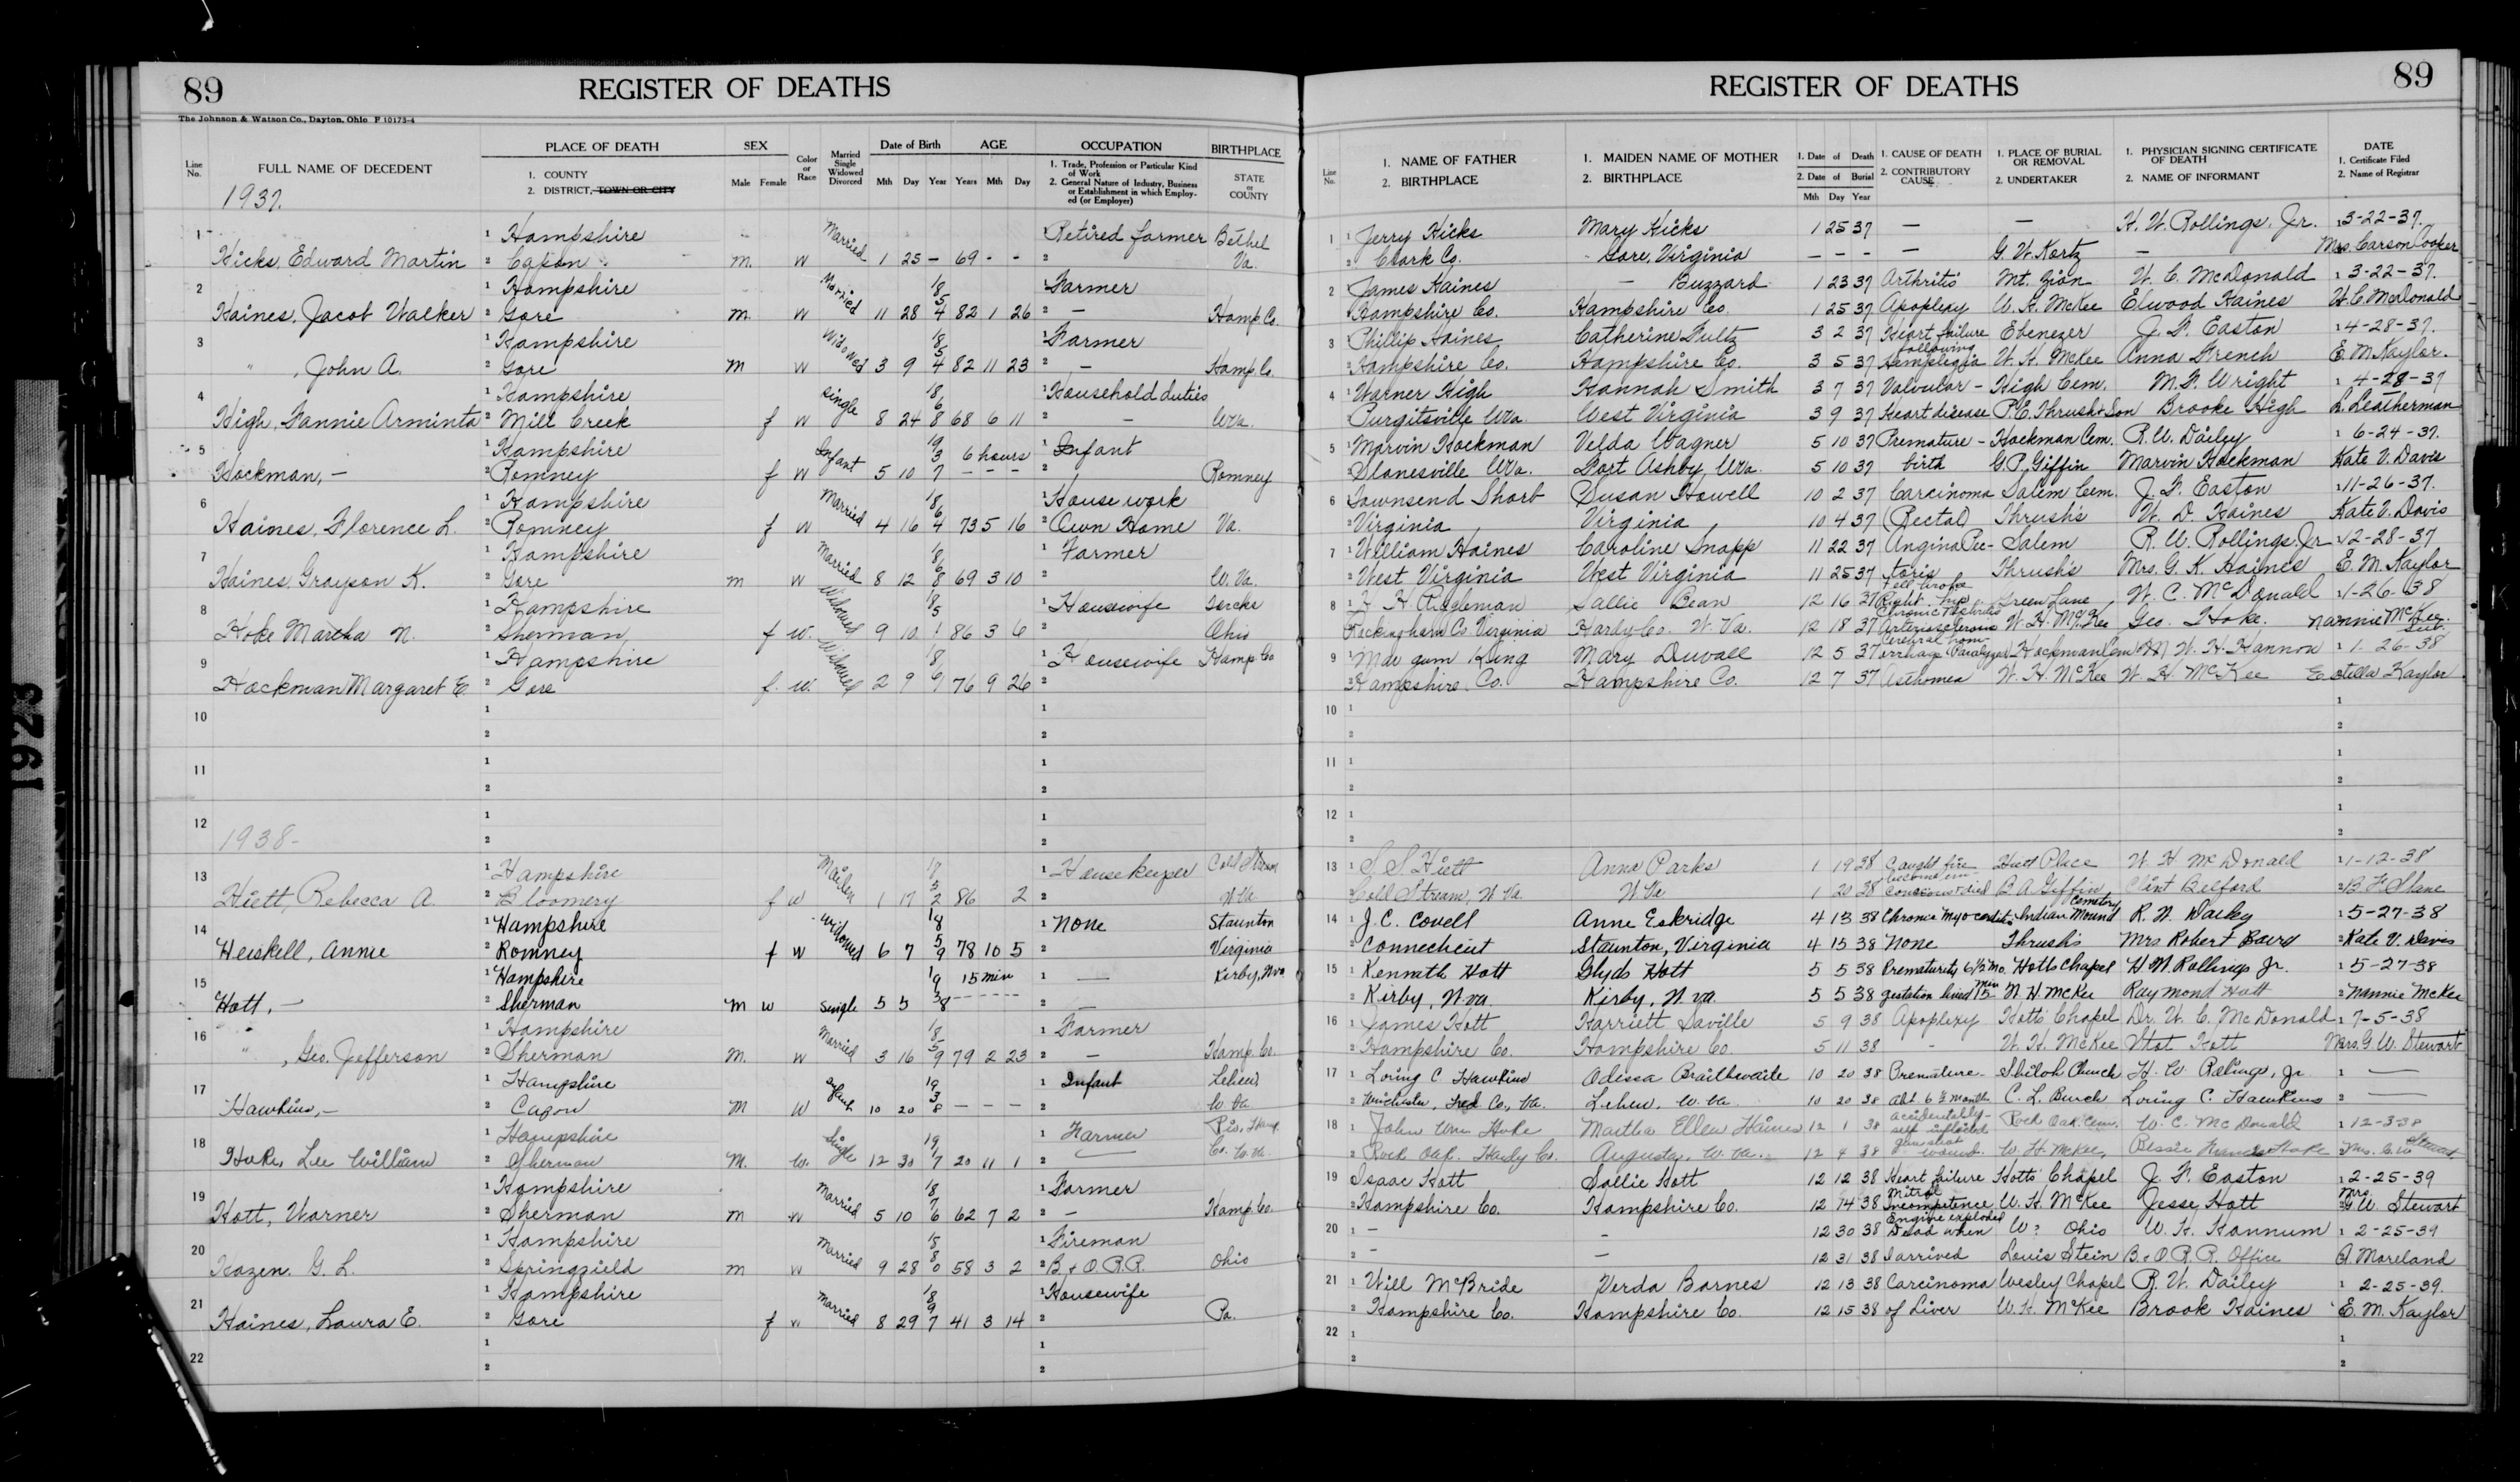 89
REGISTER OF DEATHS
The Johnson & Watson Co., Dayton, Ohio F 10173-4
Line No.
FULL NAME OF DECEDENT
PLACE OF DEATH
1. COUNTY
2. DISTRICT, TOWN OR CITY
SEX
Male Female
Color or Race
Married Single Widowed Divorced
Date of Birth
Mth Day Year
AGE
Years Mth Day
OCCUPATION
1. Trade, Profession or Particular Kind of Work
2. General Nature of Industry, Business or Establishment in which Employed (or Employer)
BIRTHPLACE
STATE or COUNTY
1937.
1 1 Hampshire Married 1 Retired farmer Bethel
Hicks, Edward Martin 2 Capon m. w 1 25 - 69 - - 2 Va.
2 1 Hampshire Married 1 Farmer
Haines, Jacob Walker 2 Gore m. w 11 28 1854 82 1 26 2 - Hamp Co.
3 1 Hampshire Widowed 1 Farmer
" , John A. 2 Gore m w 3 9 1854 82 11 23 2 - Hamp. Co.
4 1 Hampshire single 1 Household duties
High, Fannie Arminta 2 Mill Creek f w 8 24 1868 68 6 11 2 - W.Va.
5 1 Hampshire Infant 6 hours 1 Infant
Hockman, - 2 Romney f w 5 10 1937 - - - 2 Romney
6 1 Hampshire Married 1 House work
Haines, Florence L. 2 Romney f w 4 16 1864 73 5 16 2 Own Home Va.
7 1 Hampshire Married 1 Farmer
Haines, Grayson K. 2 Gore m w 8 12 1868 69 3 10 2 W. Va.
8 1 Hampshire Widowed 1 Housewife
Hoke Martha N. 2 Sherman f w. 9 10 1851 86 3 6 2 Ohio
9 1 Hampshire Widowed 1 Housewife Hamp Co
Hockman Margaret E. 2 Gore f. w. 2 9 76 9 26 2
10 1 1
2 2
11 1 1
2 2
12 1 1
1938- 2 2
13 1 Hampshire Maiden 1 Housekeeper Cold Stream
Hiett, Rebecca A. 2 Bloomery f w 1 17 1852 86 2 2 W Va.
14 1 Hampshire Widowed 1 None Staunton
Heiskell, Annie 2 Romney f w 6 7 1859 78 10 5 2 Virginia
15 1 Hampshire 15 min 1 — Kirby, W.va
Hott, - 2 Sherman M w single 5 5 1938 - - - 2 —
16 1 Hampshire Married 1 Farmer
" , Geo. Jefferson 2 Sherman M. w 3 16 1859 79 2 23 2 - Hamp. Co.
17 1 Hampshire Infant 1 Infant Lehew
Hawkins, - 2 Capon M w 10 20 1938 - - - 2 W Va
18 1 Hampshire Single 1 Farmer
Hoke, Lee William 2 Sherman M. w. 12 30 1917 20 11 1 2 — Co. W. Va.
19 1 Hampshire Married 1 Farmer
Hott, Warner 2 Sherman m w 5 10 1876 62 7 2 2 - Hamp. Co.
20 1 Hampshire Married 1 Fireman
Hazen. G. L. 2 Springfield m w 9 28 1880 58 3 2 2 B. & O. R.R. Ohio
21 1 Hampshire Married 1 Housewife
Haines, Laura E. 2 Gore f w 8 29 1897 41 3 14 2 Pa.
22 1 1
2 2
REGISTER OF DEATHS
89
Line No.
1. NAME OF FATHER
2. BIRTHPLACE
1. MAIDEN NAME OF MOTHER
2. BIRTHPLACE
1. Date of Death
2. Date of Burial
Mth Day Year
1. CAUSE OF DEATH
2. CONTRIBUTORY CAUSE
1. PLACE OF BURIAL OR REMOVAL
2. UNDERTAKER
1. PHYSICIAN SIGNING CERTIFICATE OF DEATH
2. NAME OF INFORMANT
DATE
1. Certificate Filed
2. Name of Registrar
1 1 Jerry Hicks Mary Hicks 1 25 37 — — H. W. Rollings, Jr. 1 3-22-37.
2 Clark Co. Gore, Virginia - - - — G. W. Kertz — Mrs. Carson Cooper
2 James Haines — Buzzard 1 23 37 Arthritis Mt. Zion W. C. McDonald 1 3-22-37.
Hampshire Co. Hampshire Co. 1 25 37 Apoplexy W. H. McKee Elwood Haines W. C. McDonald
3 Phillip Haines Catherine Fultz 3 2 37 Heart failure Ebenezer J. F. Easton 1 4-28-37.
2 Hampshire Co. Hampshire Co. 3 5 37 following Hemiplegia W. H. McKee Anna French E. M. Kaylor.
4 1 Warner High Hannah Smith 3 7 37 Valvular - High Cem. M. F. Wright 1 4-28-37
Purgitsville W.Va. West Virginia 3 9 37 Heart disease P. E. Thrush & Son Brooke High L. Leatherman
5 1 Marvin Hockman Velda Wagner 5 10 37 Premature - Hockman Cem. R. W. Dailey 1 6-24-37.
2 Slanesville W.Va. Fort Ashby W.Va. 5 10 37 birth G. P. Giffin Marvin Hockman Kate V. Davis
6 Townsend Short Susan Howell 10 2 37 Carcinoma Salem Cem. J. F. Easton 1 11-26-37.
2 Virginia Virginia 10 4 37 (Rectal) Thrush's W. D. Haines Kate V. Davis
7 1 William Haines Caroline Snapp 11 22 37 Angina Pec- Salem R. W. Rollings, Jr 12-28-37
2 West Virginia West Virginia 11 25 37 toris Thrush's Mrs. G. K. Haines E. M. Kaylor
8 1 H. H. Riggleman Sallie Bean 12 16 37 Fell broke Right hip Green Lane W. C. McDonald 1-26-38
Rockingham Co. Virginia Hardy Co. W. Va. 12 18 37 Arteriosclerosis W. H. McKee Geo. Hoke. Nannie McKee
9 1 King Mary Duvall 12 5 37 Cerebral hemorrhage Paralyzed Hockman Cem W. H. Hannon 1 1-26-38
2 Hampshire Co. Hampshire Co. 12 7 37 Asthmea W. H. McKee W. H. McKee Estella Kaylor
10 1 1
2 2
11 1 1
2 2
12 1 1
2 2
13 1 S. S. Hiett Anna Parks 1 19 38 Caught fire Hiett Place W. H. McDonald 1 1-12-38
Cold Stream, W Va. W Va 1 20 38 died B. A. Giffin Clint Belford 2 B F Slane
14 1 J. C. Covell Anne Eskridge 4 13 38 Chronic Myocarditis Indian Mound Cemetery R. W. Dailey 1 5-27-38
2 Connecticut Staunton, Virginia 4 15 38 None Thrush's Mrs Robert Baird 2 Kate V. Davis
15 1 Kenneth Hott Glyds Hott 5 5 38 Prematurity 6 1/2 Mo. Hotts Chapel H W. Rollings Jr. 1 5-27-38
2 Kirby, W.va. Kirby, W. va. 5 5 38 gestation lived 15 min W. H. McKee Raymond Hott 2 Nannie McKee
16 1 James Hott Harriett Saville 5 9 38 Apoplexy Hotts Chapel Dr. W. C. McDonald 1 7-5-38
2 Hampshire Co. Hampshire Co. 5 11 38 - W. H. McKee Hott Mrs. G. W. Stewart
17 1 Loring C Hawkins Odessa Braithwaite 10 20 38 Premature Shiloh Church H. W. Rolings, Jr 1 —
2 Winchester, Fred Co., Va. Lehew, W. Va 10 20 38 Abt. 6 1/2 month C. L. Burch Loring C. Hawkins 2 —
18 1 John Wm Hoke Martha Ellen Haines 12 1 38 accidentally- self inflicted Rock Oak Cem. W. C. McDonald 1 12-3-38
2 Rock Oak. Hardy Co. Augusta, W. Va. 12 4 38 gun shot wound. W. H. McKee, Bessie Hoke 2 Mrs. G. W. Stewart
19 Isaac Hott Sallie Hott 12 12 38 Heart failure Hotts Chapel J. F. Easton 1 2-25-39
2 Hampshire Co. Hampshire Co. 12 14 38 Mitral Incompetence W. H. McKee Jesse Hott Mrs. G. W. Stewart
20 1 - - 12 30 38 Engine exploded Dead when W? Ohio W. H. Hannum 1 2-25-39
2 - — 12 31 38 I arrived Louis Stein B. & O. R. R. Office A. Moreland
21 1 Will McBride Verda Barnes 12 13 38 Carcinoma Wesley Chapel R. W. Dailey 1 2-25-39.
2 Hampshire Co. Hampshire Co. 12 15 38 of Liver W. H. McKee Brook Haines E. M. Kaylor
22 1 1
2 2